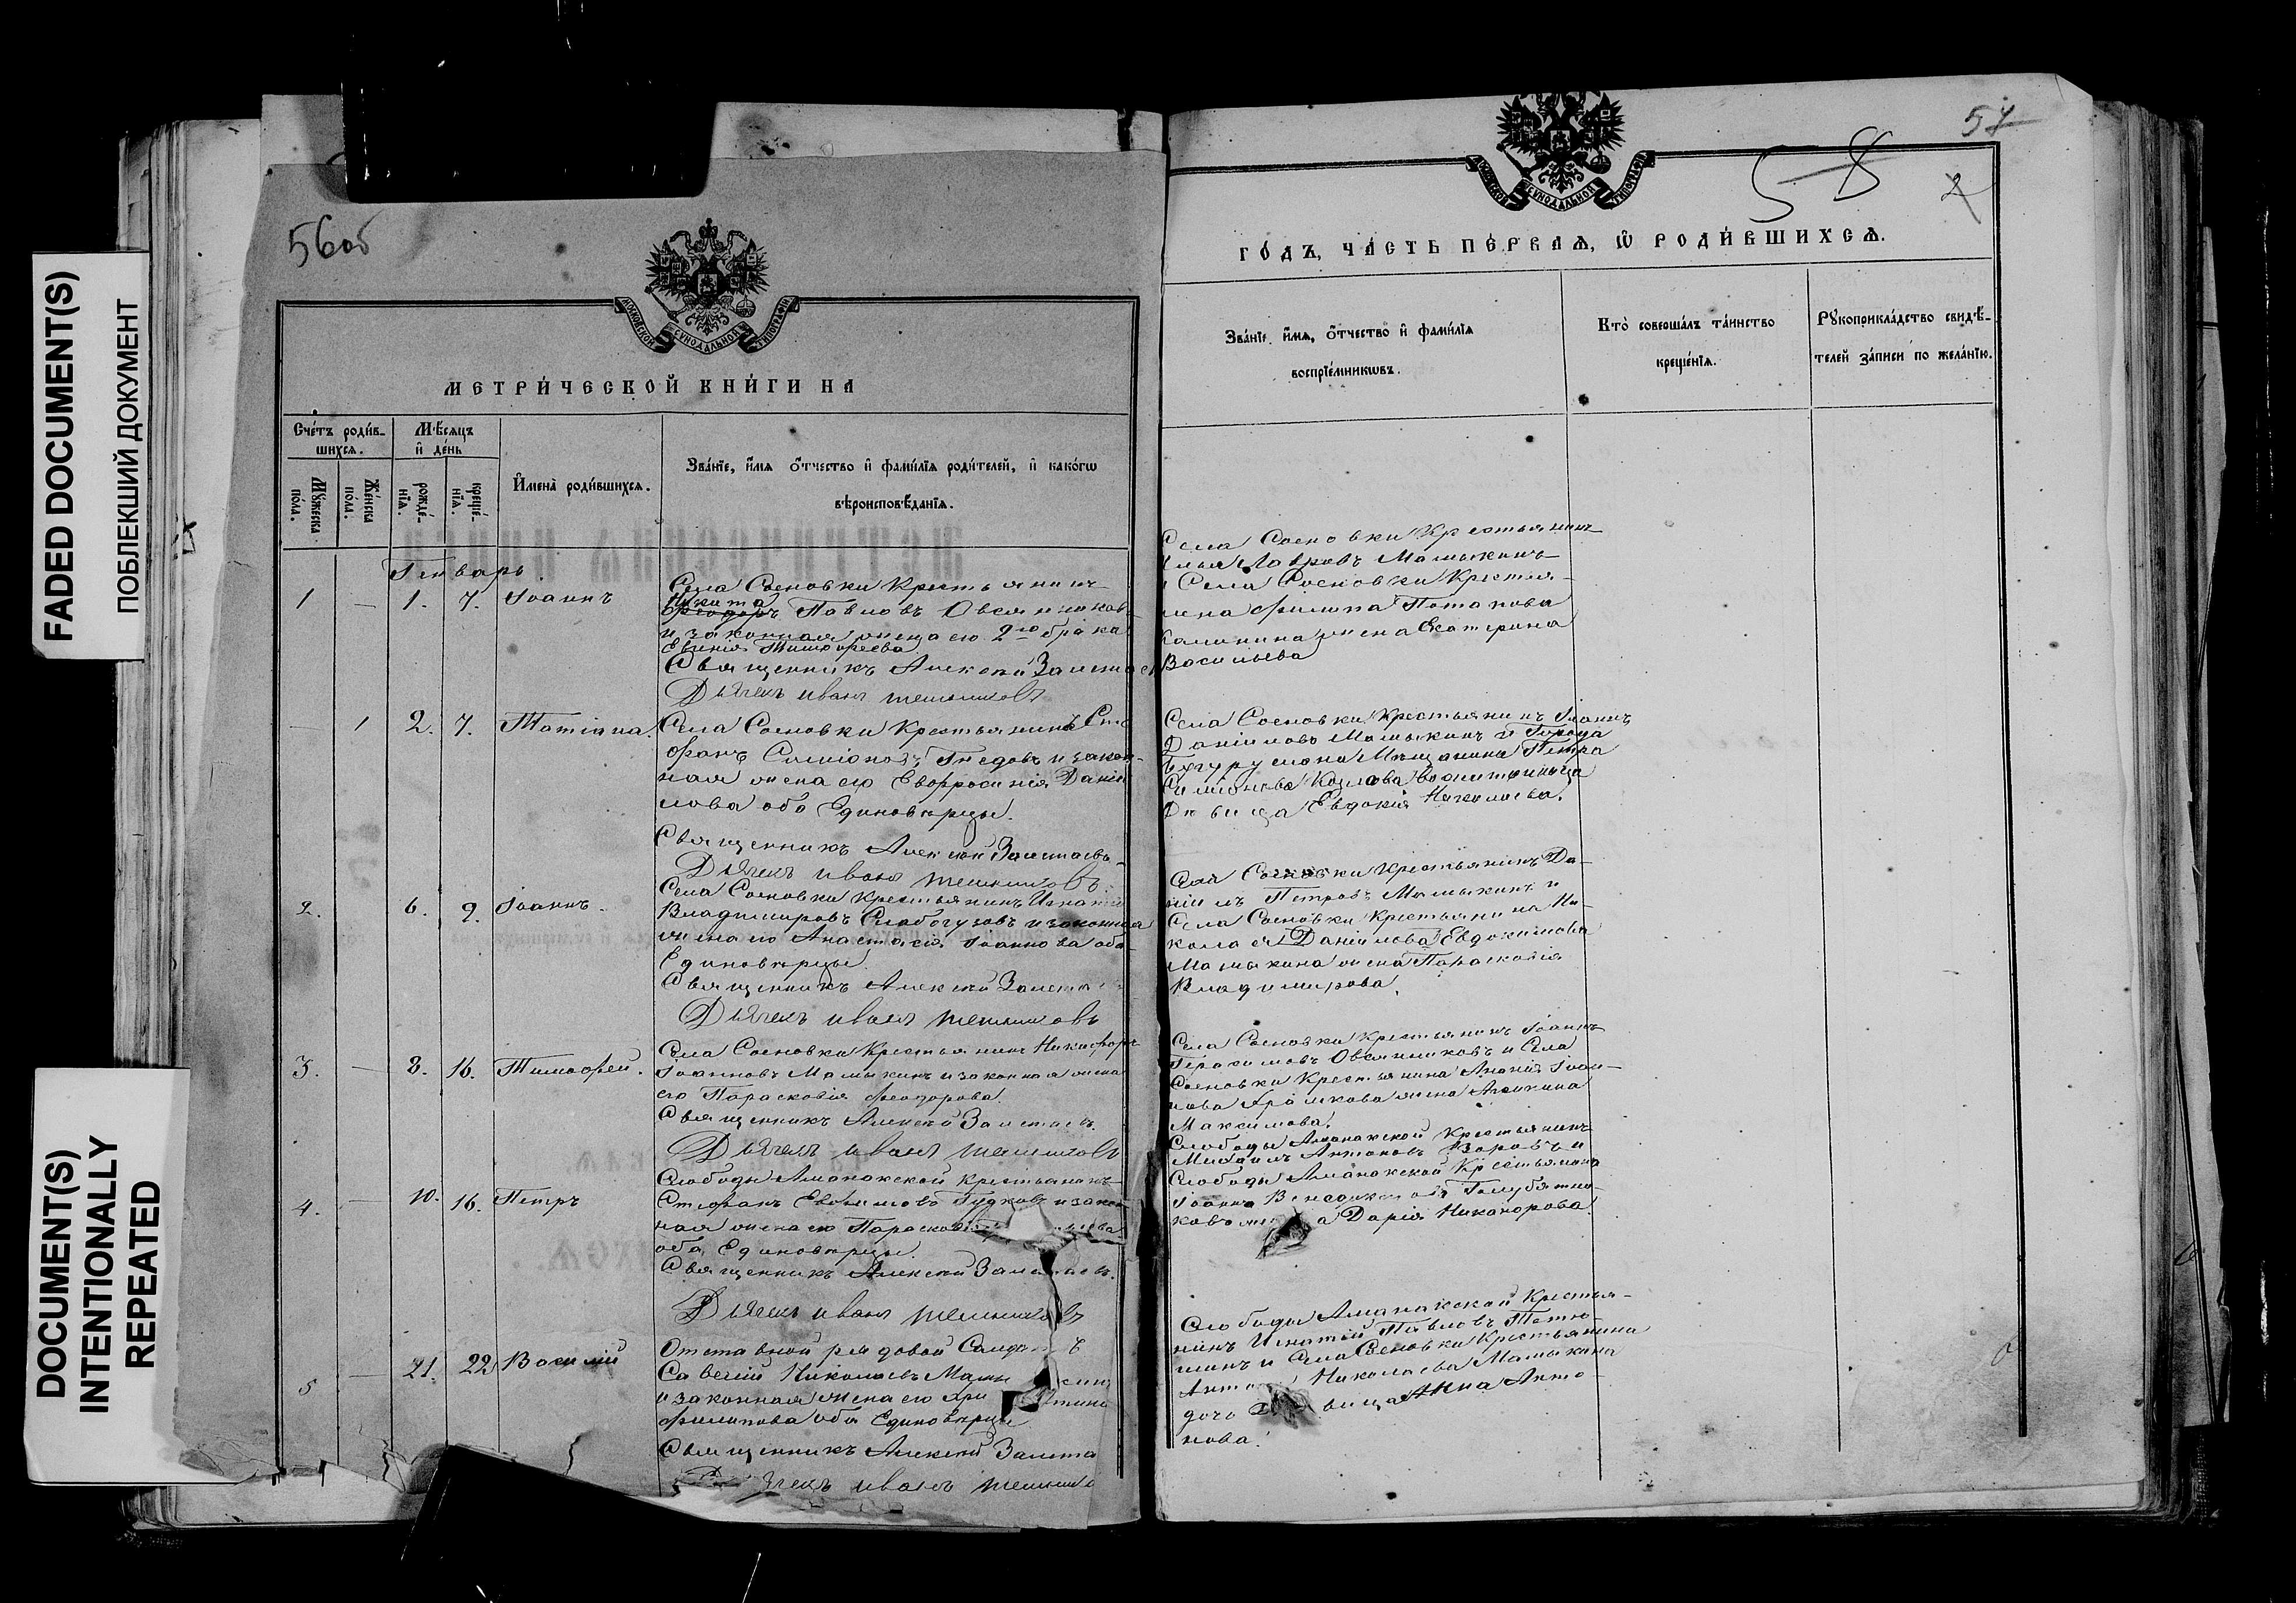 FADED DOCUMENT(S)
ПОБЛЕКШИЙ ДОКУМЕНТ
DOCUMENT(S)
INTENTIONALLY
REPEATED
56об
МОСКОВСКОЙ СѴНОДАЛЬНОЙ ТИПОГРАФІИ
МЕТРИ́ЧЕСКОЙ КНИ́ГИ НА
Сче́тъ роди́в-
шихсѧ.
Мꙋ́жеска
по́ла.
Же́нска
по́ла.
Мѣ́сѧцъ
и҆ де́нь
рожде́-
нїѧ.
креще́-
нїѧ.
И҆мена̀ роди́вшихсѧ.
Зва́нїе, и҆́мѧ ѻ҆́тчество и҆ фами́лїѧ роди́телей, и҆ како́гѡ
вѣроисповѣ́данїѧ.
Генварь
1 — 1. 7. Іоаннъ
Села Сосновки Крестьянинъ
Никита
Феодоръ Павловъ Овсянников
и законная жена его 2го брака
Евгенія Тимофеева
Священникъ Алексій
Дьячекъ иванъ
— 1 2. 7. Татіана.
Села Сосновки Крестьянинъ Сте
фанъ Симіоновъ Гнедовъ и закон-
ная жена его Евфросинія Даніи
лова оба Единоверцы.
Священникъ Алексій
Дьячекъ иванъ
2. — 6. 9. Іоаннъ.
Села Сосновки Крестьянинъ Игнатій
Владимировъ Слабогузовъ и законная
жена его Анастасія Іоаннова оба
Единоверцы.
Священникъ Алексій
Дьячекъ иванъ
3. — 8. 16. Тимофей.
Села Сосновки Крестьянинъ Никифоръ
Іоанновъ Мамыкинъ и законная жена
его Парасковія Феодорова.
Священникъ Алексій
Дьячекъ иванъ
4. — 10. 16. Петръ
Слободы Аманакской Крестьянинъ
Стефанъ Евфимовъ Гудковъ и закон-
ная жена его Параскові
оба Единоверцы.
Священникъ Алексій
Дьячекъ иванъ
5 — 21. 22. Василій
Отставной рядовой
Савелій Николаевъ Мамы кин
и законная жена его Хри стина
Филипова оба Единоверцы
Священникъ Алексій
иванъ
57
58
2
МОСКОВСКОЙ СѴНОДАЛЬНОЙ ТИПОГРАФІИ
ГО́ДЪ, ЧА́СТЬ ПЕ́РВАѦ, Ѽ РОДИ́ВШИХСѦ.
Зва́нїе, и҆́мѧ, ѻ҆́тчество и҆ фами́лїѧ
воспрїе́мникѡвъ.
Кто̀ соверша́лъ та́инство
креще́нїѧ.
Рꙋкоприкла́дство свидѣ́-
телей за́писи по жела́нїю.
Села Сосновки Крестьянинъ
Лавровъ Мамыкинъ
и Села Сосновки Крестья-
нина Филипа Потапова
Калинина жена Екатерина
Васильева
Села Сосновки Крестьянинъ Іоаннъ
Даніиловъ Мамыкинъ и Города
Бугуруслана Мещанина Петра
Симіонова Козлова воспитанница
Девица Евдокія Николаева.
Села Сосновки Крестьянинъ Да-
ніилъ Петровъ Мамыкинъ и
Села Сосновки Крестьянина Ни-
колая Даніилова Евдокимова
Мамыкина жена Параскавія
Владимирова.
Села Сосновки Крестьянинъ Іоаннъ
Герасимовъ Овсянниковъ и Села
Сосновки Крестьянина Ананія Іоан-
нова Храмкова жена Акилина
Максимова.
Слободы Аманакской Крестьянинъ
Михаилъ Антоновъ и
Слободы Аманакской Крестьянина
Іоанна Голубятни-
кова а Дарія Никанорова.
Слободы Аманакской Крестья-
нинъ Игнатій Павловъ
и Села Сосновки Крестьянина
Николаева Мамыкина
дочь вица Анна Анто-
нова.